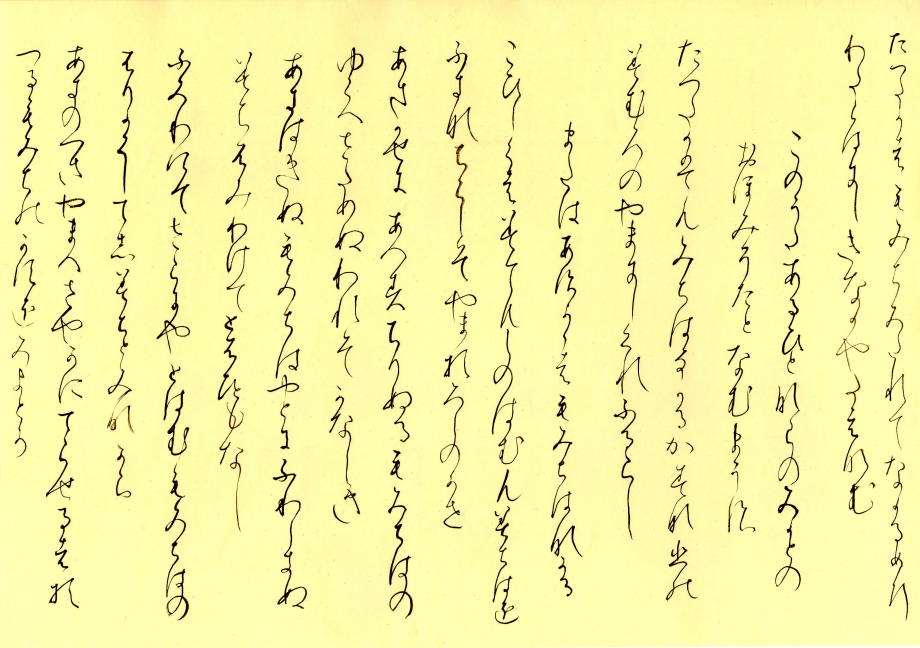 たつたかはもみちみたれてなかるめり
わたらはにしきなかやたえなむ
このうたあるひとならのみかとの
おほみうたとなむまうす
たつたかはもみちはなかるかみなひの
みむろのやまにしくれふるらし
またはあすかかはもみちはなかる
こひしくはみてもしのはむもみちはを
ふきなちらしそやまおろしのかせ
あきかせにあへすちりぬるもみちはの
ゆくへさためぬわれそかなしき
あきはきぬもみちはやとにふりしきぬ
みちふみわけてとふひともなし
ふみわけてさらにやとはむもみちはの
ふりかくしてしみちとみなから
あきのつきやまへさやかにてらせるはお
つるもみちのかすをみよとか